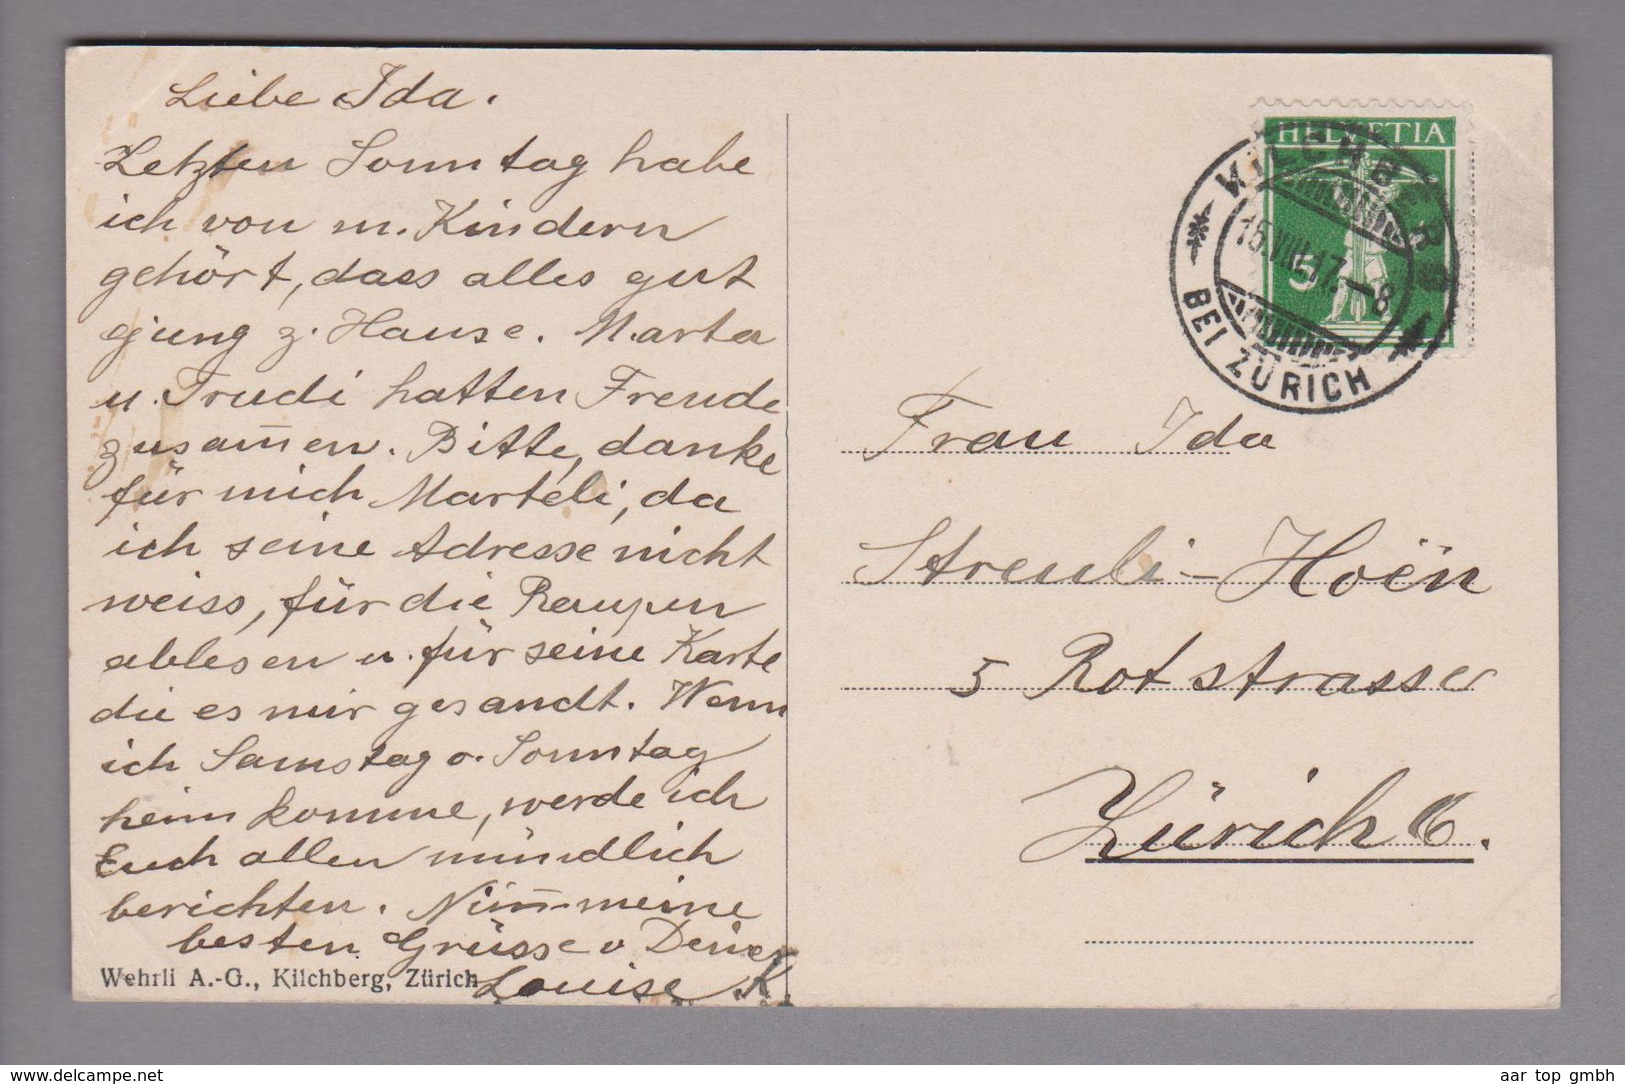 Liebe Ida.
Letzten Sonntag habe
ich von m. Kindern
gehört, dass alles gut
gjung z. Hause. Marta
u. Trudi hatten Freude
zusam̅en. Bitte, danke
für mich Marteli, da
ich seine Adresse nicht
weiss, für die Raupen
ablesen u. für seine Karte
die es mir gesandt. Wenn
ich Samstag o. Sonntag
heim komme, werde ich
Euch allen mündlich
berichten. Nim̅ meine
besten Grüsse v Deiner
Louise K.
Wehrli A.-G., Kilchberg, Zürich
HELVETIA
5
KILCHBERG
15.VIII.17.-8
BEI ZÜRICH
Frau Ida
Streuli-Hoën
5 Rotstrasse
Zürich 6.
www.delcampe.net
aar top gmbh